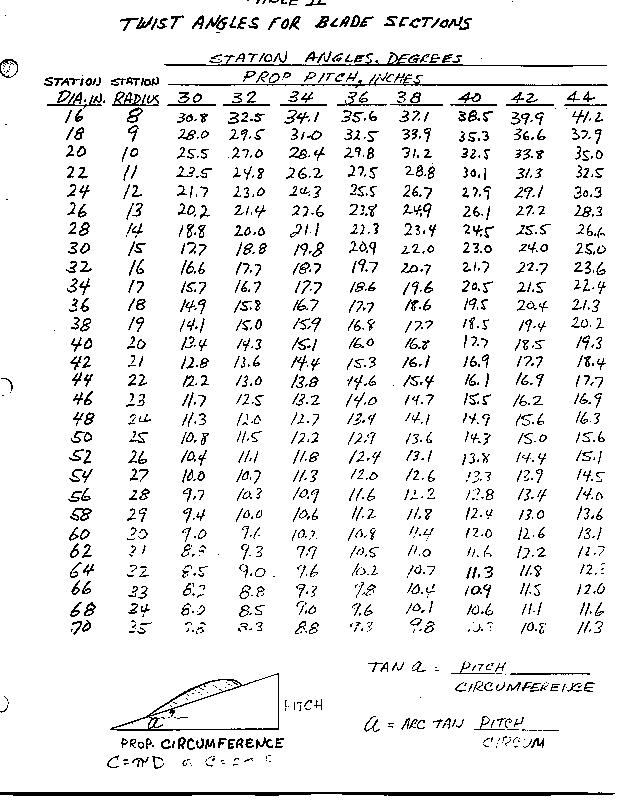 TWIST ANGLES FOR BLADE SECTIONS
STATION ANGLES, DEGREES
STATION STATION PROP PITCH, INCHES
DIA. IN. RADIUS 30 32 34 36 38 40 42 44
16 8 30.8 32.5 34.1 35.6 37.1 38.5 39.9 41.2
18 9 28.0 29.5 31.0 32.5 33.9 35.3 36.6 37.9
20 10 25.5 27.0 28.4 29.8 31.2 32.5 33.8 35.0
22 11 23.5 24.8 26.2 27.5 28.8 30.1 31.3 32.5
24 12 21.7 23.0 24.3 25.5 26.7 27.9 29.1 30.3
26 13 20.2 21.4 22.6 23.8 24.9 26.1 27.2 28.3
28 14 18.8 20.0 21.1 22.3 23.4 24.5 25.5 26.6
30 15 17.7 18.8 19.8 20.9 22.0 23.0 24.0 25.0
32 16 16.6 17.7 18.7 19.7 20.7 21.7 22.7 23.6
34 17 15.7 16.7 17.7 18.6 19.6 20.5 21.5 22.4
36 18 14.9 15.8 16.7 17.7 18.6 19.5 20.4 21.3
38 19 14.1 15.0 15.9 16.8 17.7 18.5 19.4 20.2
40 20 13.4 14.3 15.1 16.0 16.8 17.7 18.5 19.3
42 21 12.8 13.6 14.4 15.3 16.1 16.9 17.7 18.4
44 22 12.2 13.0 13.8 14.6 15.4 16.1 16.9 17.7
46 23 11.7 12.5 13.2 14.0 14.7 15.5 16.2 16.9
48 24 11.3 12.0 12.7 13.4 14.1 14.9 15.6 16.3
50 25 10.8 11.5 12.2 12.9 13.6 14.3 15.0 15.6
52 26 10.4 11.1 11.8 12.4 13.1 13.8 14.4 15.1
54 27 10.0 10.7 11.3 12.0 12.6 13.3 13.9 14.5
56 28 9.7 10.3 10.9 11.6 12.2 12.8 13.4 14.0
58 29 9.4 10.0 10.6 11.2 11.8 12.4 13.0 13.6
60 30 9.0 9.6 10.2 10.8 11.4 12.0 12.6 13.1
62 31 9.3 9.9 10.5 11.0 11.6 12.2 12.7
64 32 8.5 9.0 9.6 10.2 10.7 11.3 11.8
66 33 8.2 8.8 9.3 9.8 10.4 10.9 11.5 12.0
68 34 8.0 8.5 9.0 9.6 10.1 10.6 11.1 11.6
70 35 7.8 8.3 8.8 9.3 9.8 10.8 11.3
TAN a = PITCH
CIRCUMFERENCE
PITCH
a
a = ARC TAN PITCH
CIRCUM
PROP. CIRCUMFERENCE
C=πD